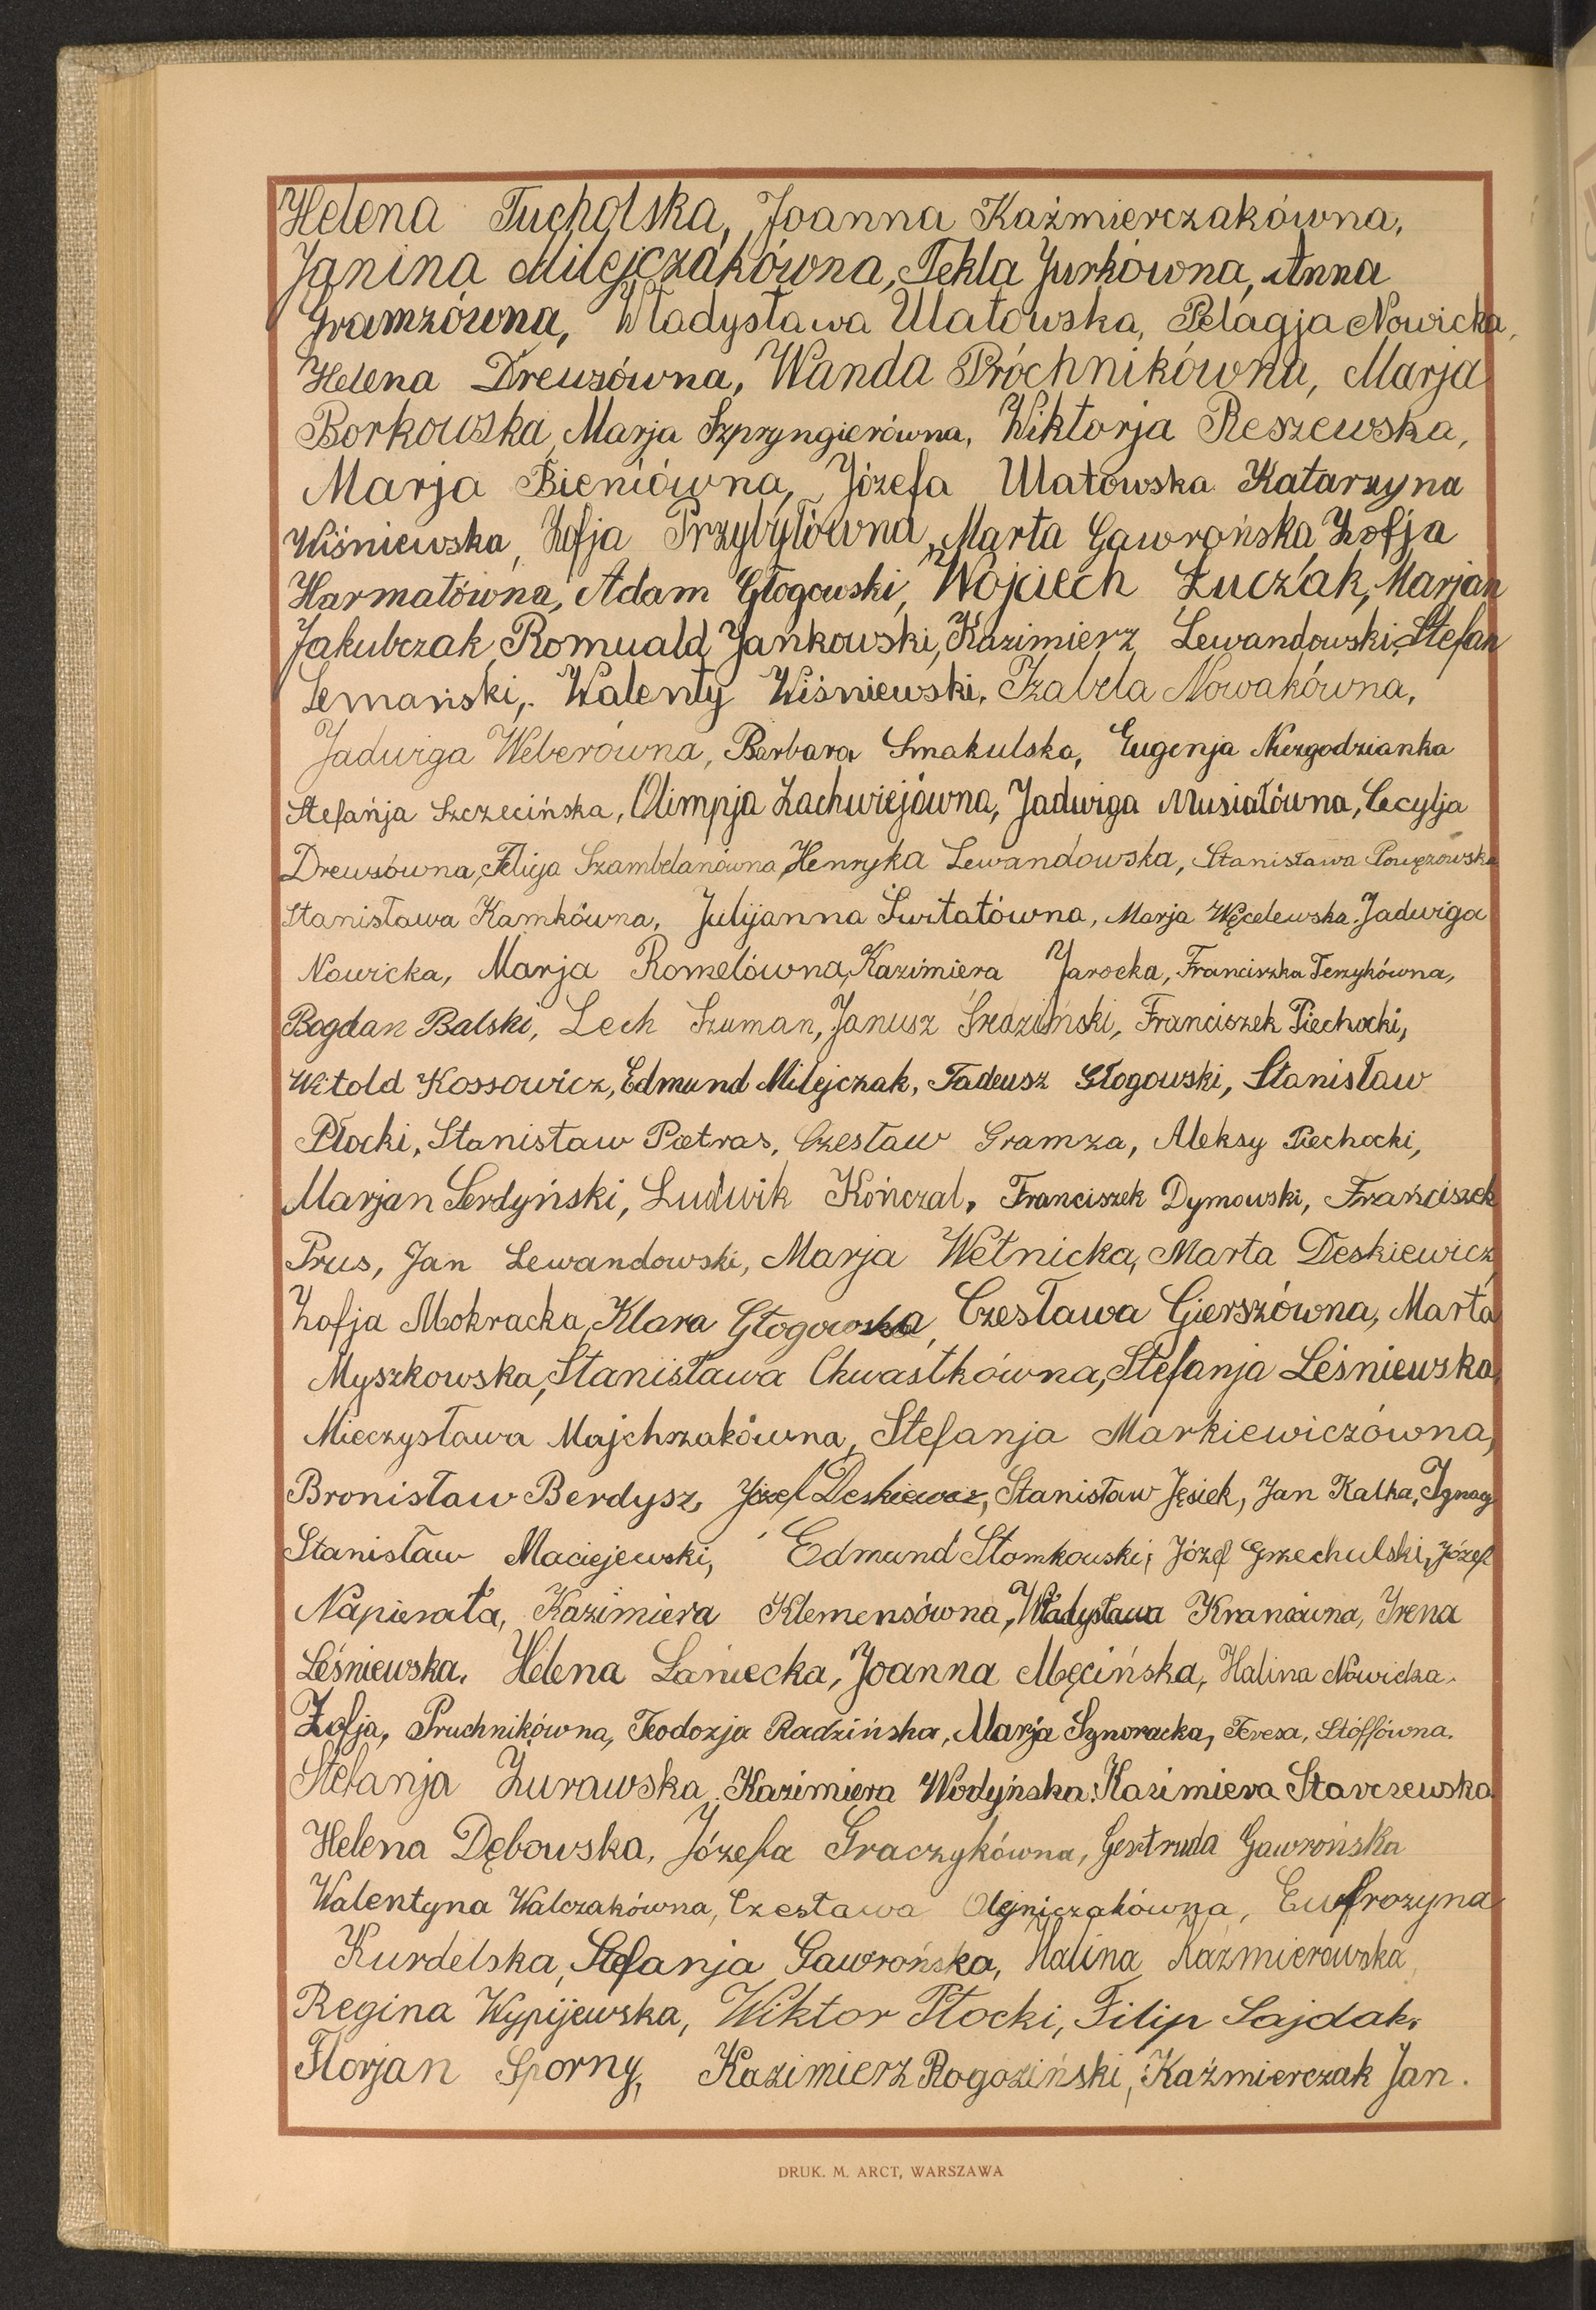 Helena Tucholska, Joanna Kaźmierczakówna,
Janina Milejczakówna, Tekla Jurkówna, Anna
Gramzówna, Władysława Ulatowska, Pelagja Nowicka,
Helena Drewsówna, Wanda Próchnikówna, Marja
Borkowska, Marja Szpryngierówna, Wiktorja Reszewska,
Marja Bieniówna, Józefa Ulatowska Katarzyna
Wiśniewska, Zofja Przybyłówna, Marta Gawrońska, Zofja
Harmatówna, Adam Głogowski, Wojciech Łuczak, Marjan
Jakubczak, Romuald Jankowski, Kazimierz Lewandowski, Stefan
Lemański, Walenty Wiśniewski, Izabela Nowakówna,
Jadwiga Weberówna, Barbara Smakulska, Eugenja Niezgodzianka
Stefańja Szczecińska, Olimpja Zachwiejówna, Jadwiga Musiałówna, Cecylja
Drewsówna, Felicja Szambelanówna, Henryka Lewandowska, Stanisława Powęzowska
Stanisława Kamkówna, Julijanna Świtatówna, Marja Węcelewska, Jadwiga
Nowicka, Marja Romelówna, Kazimiera Jarocka, Franciszka Terzykówna,
Bogdan Balski, Lech Szuman, Janusz Franciszek Piechocki,
Witold Kossowicz, Edmund Milejczak, Tadeusz Głogowski, Stanisław
Płocki, Stanisław Pietras, Czesław Gramza, Aleksy Piechocki,
Marjan Serdyński, Ludwik Kończal, Franciszek Dymowski, Franciszek
Prus, Jan Lewandowski, Marja Wetnicka, Marta Deskiewicz,
Zofja Mokracka, Klara Głogowska, Czesława Gierszówna, Marta
Myszkowska, Stanisława Chwastkówna, Stefanja Leśniewska,
Mieczysława Majchrzakówna, Stefanja Markiewiczówna,
Bronisław Berdysz, Józef Deskiewicz, Stanisław Jęsiek, Jan Kalka, Ignacy
Stanisław Maciejewski, Edmund Słomkowski, Józef Grzechulski, Józef
Napierała, Kazimiera Klemensówna, Władysława Krancówna, Irena
Leśniewska, Helena Łaniecka, Joanna Męcińska, Halina Nowicka.
Zofja, Pruchnikówna, Teodozja Radzińska, Marja Synoracka, Teresa, Stöffówna.
Stefanja Żurawska, Kazimiera Wodyńska, Kazimiera Starczewska
Helena Dębowska, Józefa Graczykówna, Gertruda Gawrońska
Walentyna Walczakówna, Czesława Olejniczakówna, Eufrozyna
Kurdelska, Stefanja Gawrońska, Halina Kaźmierowska,
Regina Wypijewska, Wiktor Płocki, Filip Sajdak,
Florjan Sporny, Kazimierz Rogoziński, Kaźmierczak Jan.
DRUK. M. ARCT, WARSZAWA